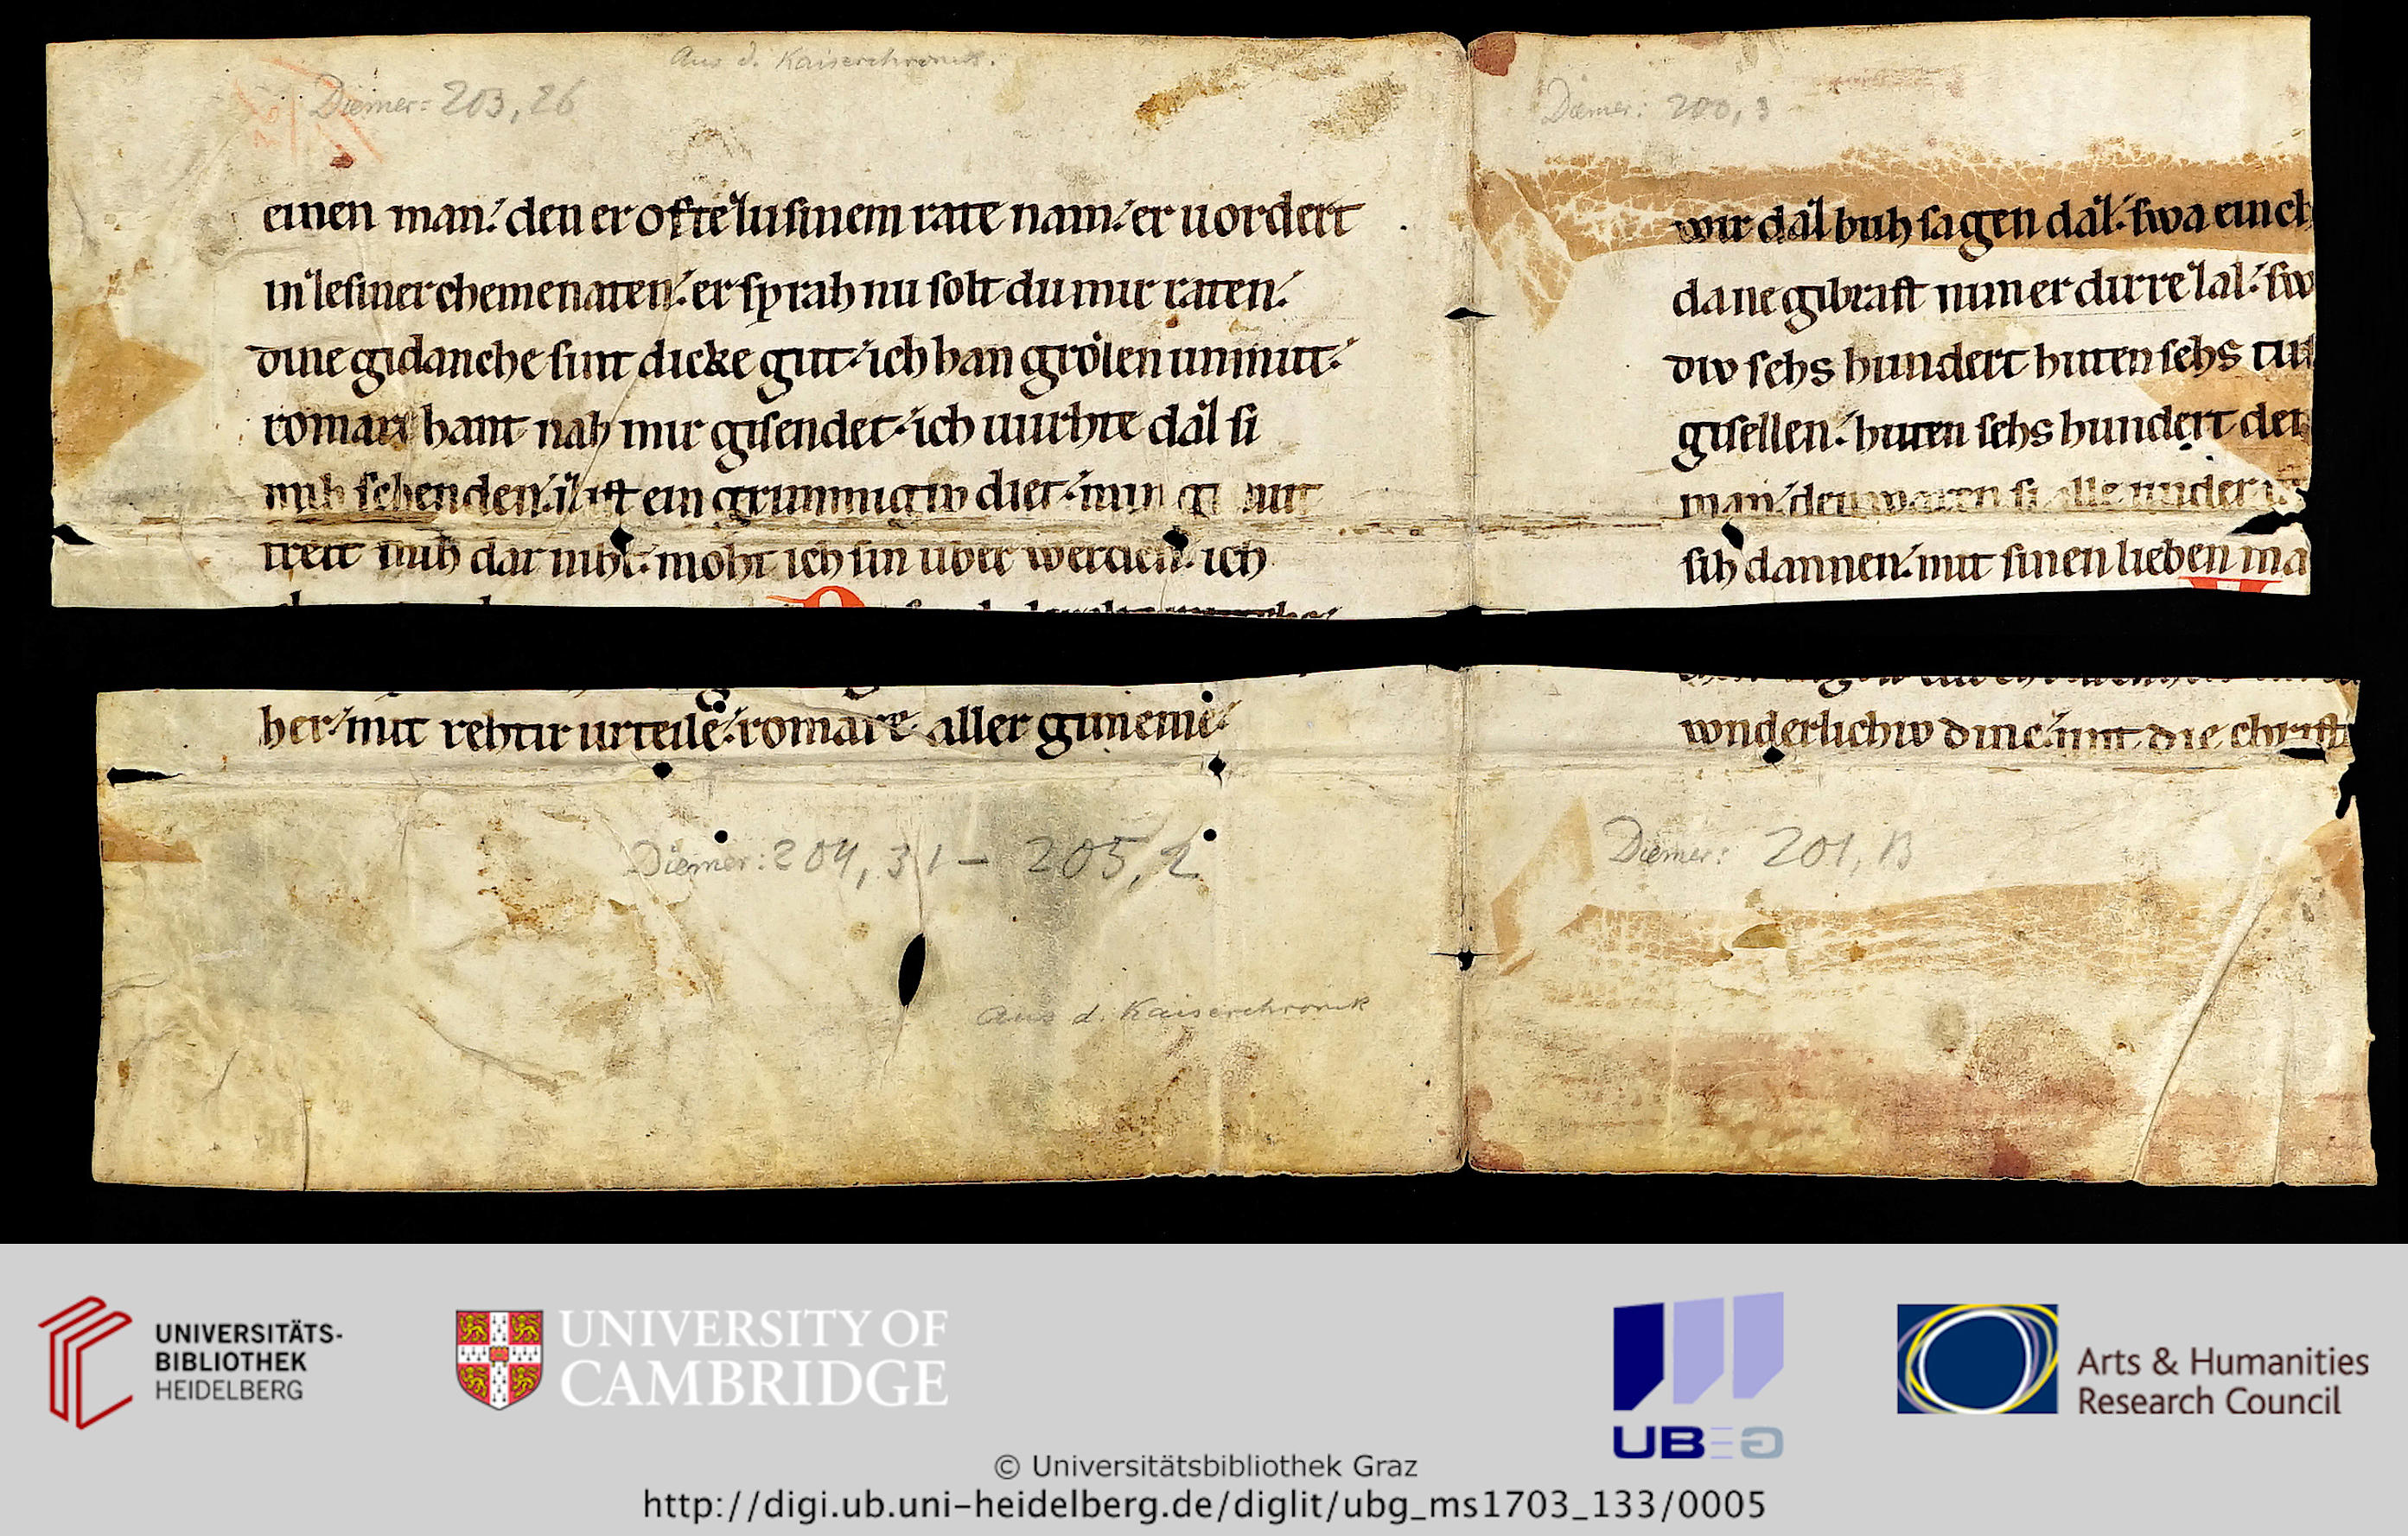 Aus d. Kaiserchronik.
Diemer: 203, 26
einen man. den er ofte zu sinem rate nam. er uordert
in ze siner chemenaten. er sprah nu solt du mir raten.
dine gidanche sint dicke gut. ich han grozen unmut.
romare hant nah mir gisendet. ich uurhte daz si
mih schenden. iz ist ein grimmigiw diet. min gi mut
treit mih dar niht. moht ich sin uber werden. ich
Diemer: 200, 3
wir daz buh sagen daz. swa ein ch
dane gibrast nimer dirre zal. sw
diw sehs hundert huten sehs tus
gisellen. huten sehs hundert der
man. den waren si alle under
sih dannen. mit sinen lieben ma
her. mit rehtir urteile. romare aller gimeine.
Diemer: 204, 31 – 205, 2
Aus d. Kaiserchronik
wnderlichiw dinc. mit die christ
Diemer: 201, 13
UNIVERSITÄTS-
BIBLIOTHEK
HEIDELBERG
UNIVERSITY OF
CAMBRIDGE
UBG
Arts & Humanities
Research Council
© Universitätsbibliothek Graz
http://digi.ub.uni-heidelberg.de/diglit/ubg_ms1703_133/0005